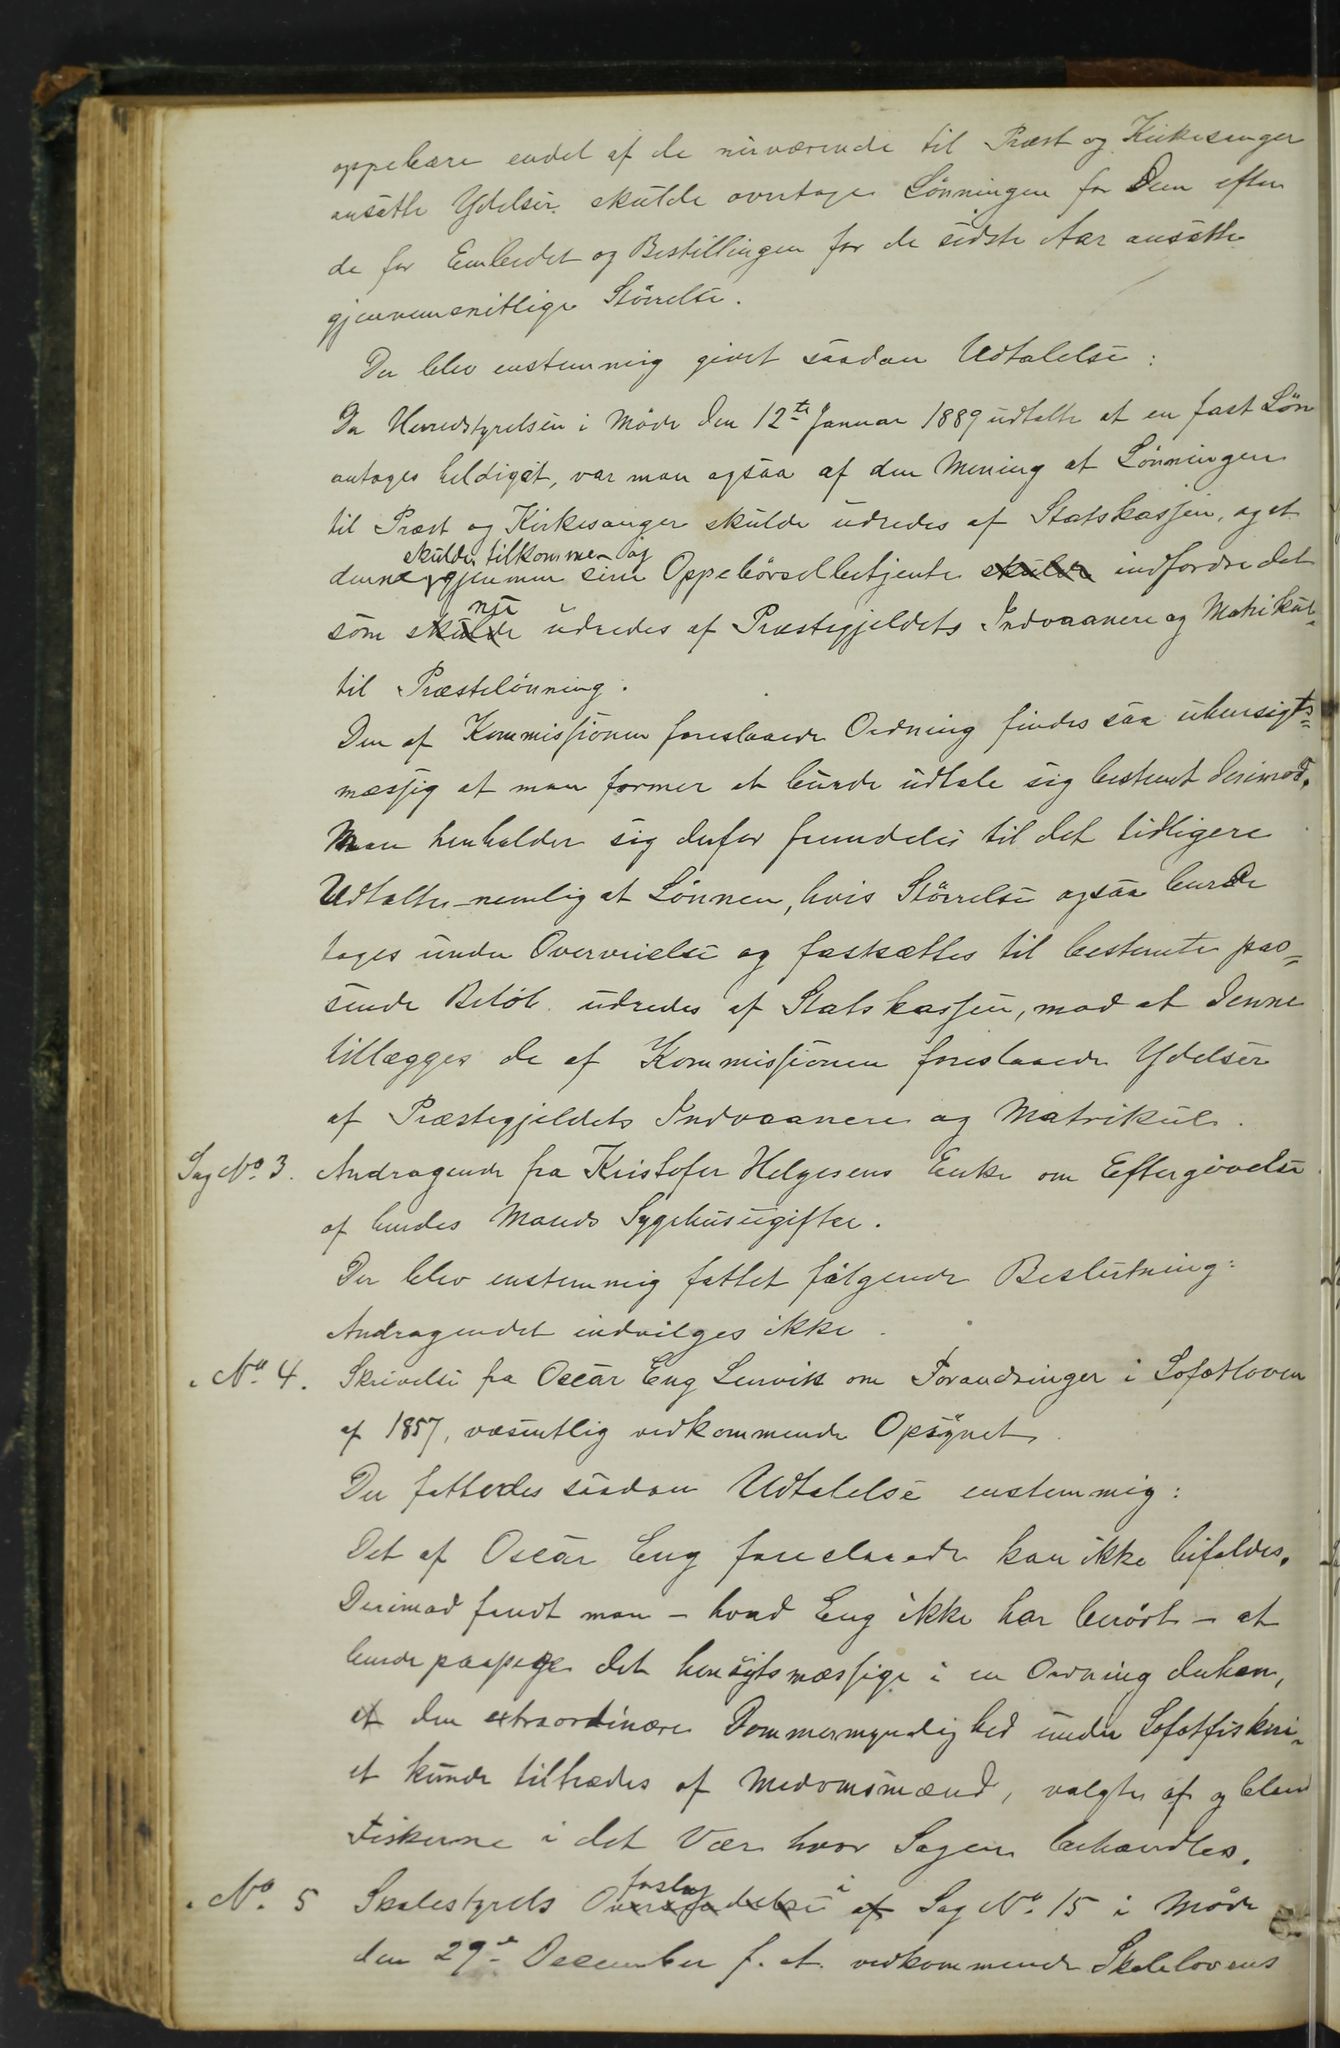 oppebære endel af de nuværende til Præst og Kirkesanger
ansatte Ydelser skulde overtage Lønningen for Dem efter
de for Embedet og Bestillingen for de sidste Aar ansatte
gjennemsnitlige Størrelse.
Der blev enstemmig givet saadan Udtalelse:
Da Herredstyrelsen i Møde den 12te Januar 1889 udtalte at en fast Løn
antages heldigst, var man ogsaa af den Mening at Lønningen
til Præst og Kirkesanger skulde udredes af Statskassen, og at
skulde tilkomme og
denne gjennem sine Oppebørselbetjente skulde indfordre det
nu
som skulde udredes af Præstegjeldets Indvaanere og Matrikul
til Præstelønning.
Den af Kommissionen foreslaaede Ordning findes saa uhensigts=
mæssig at man formener at burde udtale sig bestemt derimod.
Man henholder sig derfor fremdeles til det tidligere
Udtalte nemlig at Lønnen, hvis Størrelse ogsaa burde
tages under Overveielse og fastsættes til bestemte pas=
sende Beløb udredes af Statskassen, mod at denne
tillægges de af Kommissionen foreslaaede Ydelser
af Præstegjeldets Indvaanere og Matrikul.
Sag No. 3. Andragende fra Kristofer Helgesens Enke om Eftergivelse
af hendes Mands Sygehusugifter.
Der blev enstemmig fattet følgende Beslutning:
Andragendet indvilges ikke.
" No. 4. Skrivelse fra Oscar Eng Lenvik om Forandringer i Lofotloven
af 1857, væsentlig vedkommende Opsynet.
Der fattedes saadan Udtalelse enstemmig:
Det af Oscar Eng foreslaaede kan ikke bifaldes.
Derimod fandt man – hvad Eng ikke har berørt – at
burde paapege det hensigtsmæssige i en Ordning derhen,
at den extraordinære Dommermyndighed under Lofotfiskeri-
et kunde tiltrædes af Meddomsmænd, valgte af og bland
Fiskerne i det Vær hvor Sagen behandles.
" No. 5 Skolestyrets
forslag i
Sag No. 15 i Møde
den 29de December f. A. vedkommende Skolelovens